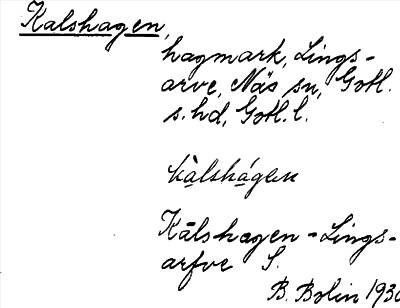 Kalshagen,
hagmark, Lings-
arve, Näs sn, Gotl.
s. hd, Gotl. l.
kàlshágen
Kālshagen - Lings-
arfve S.
B. Bolin 1930